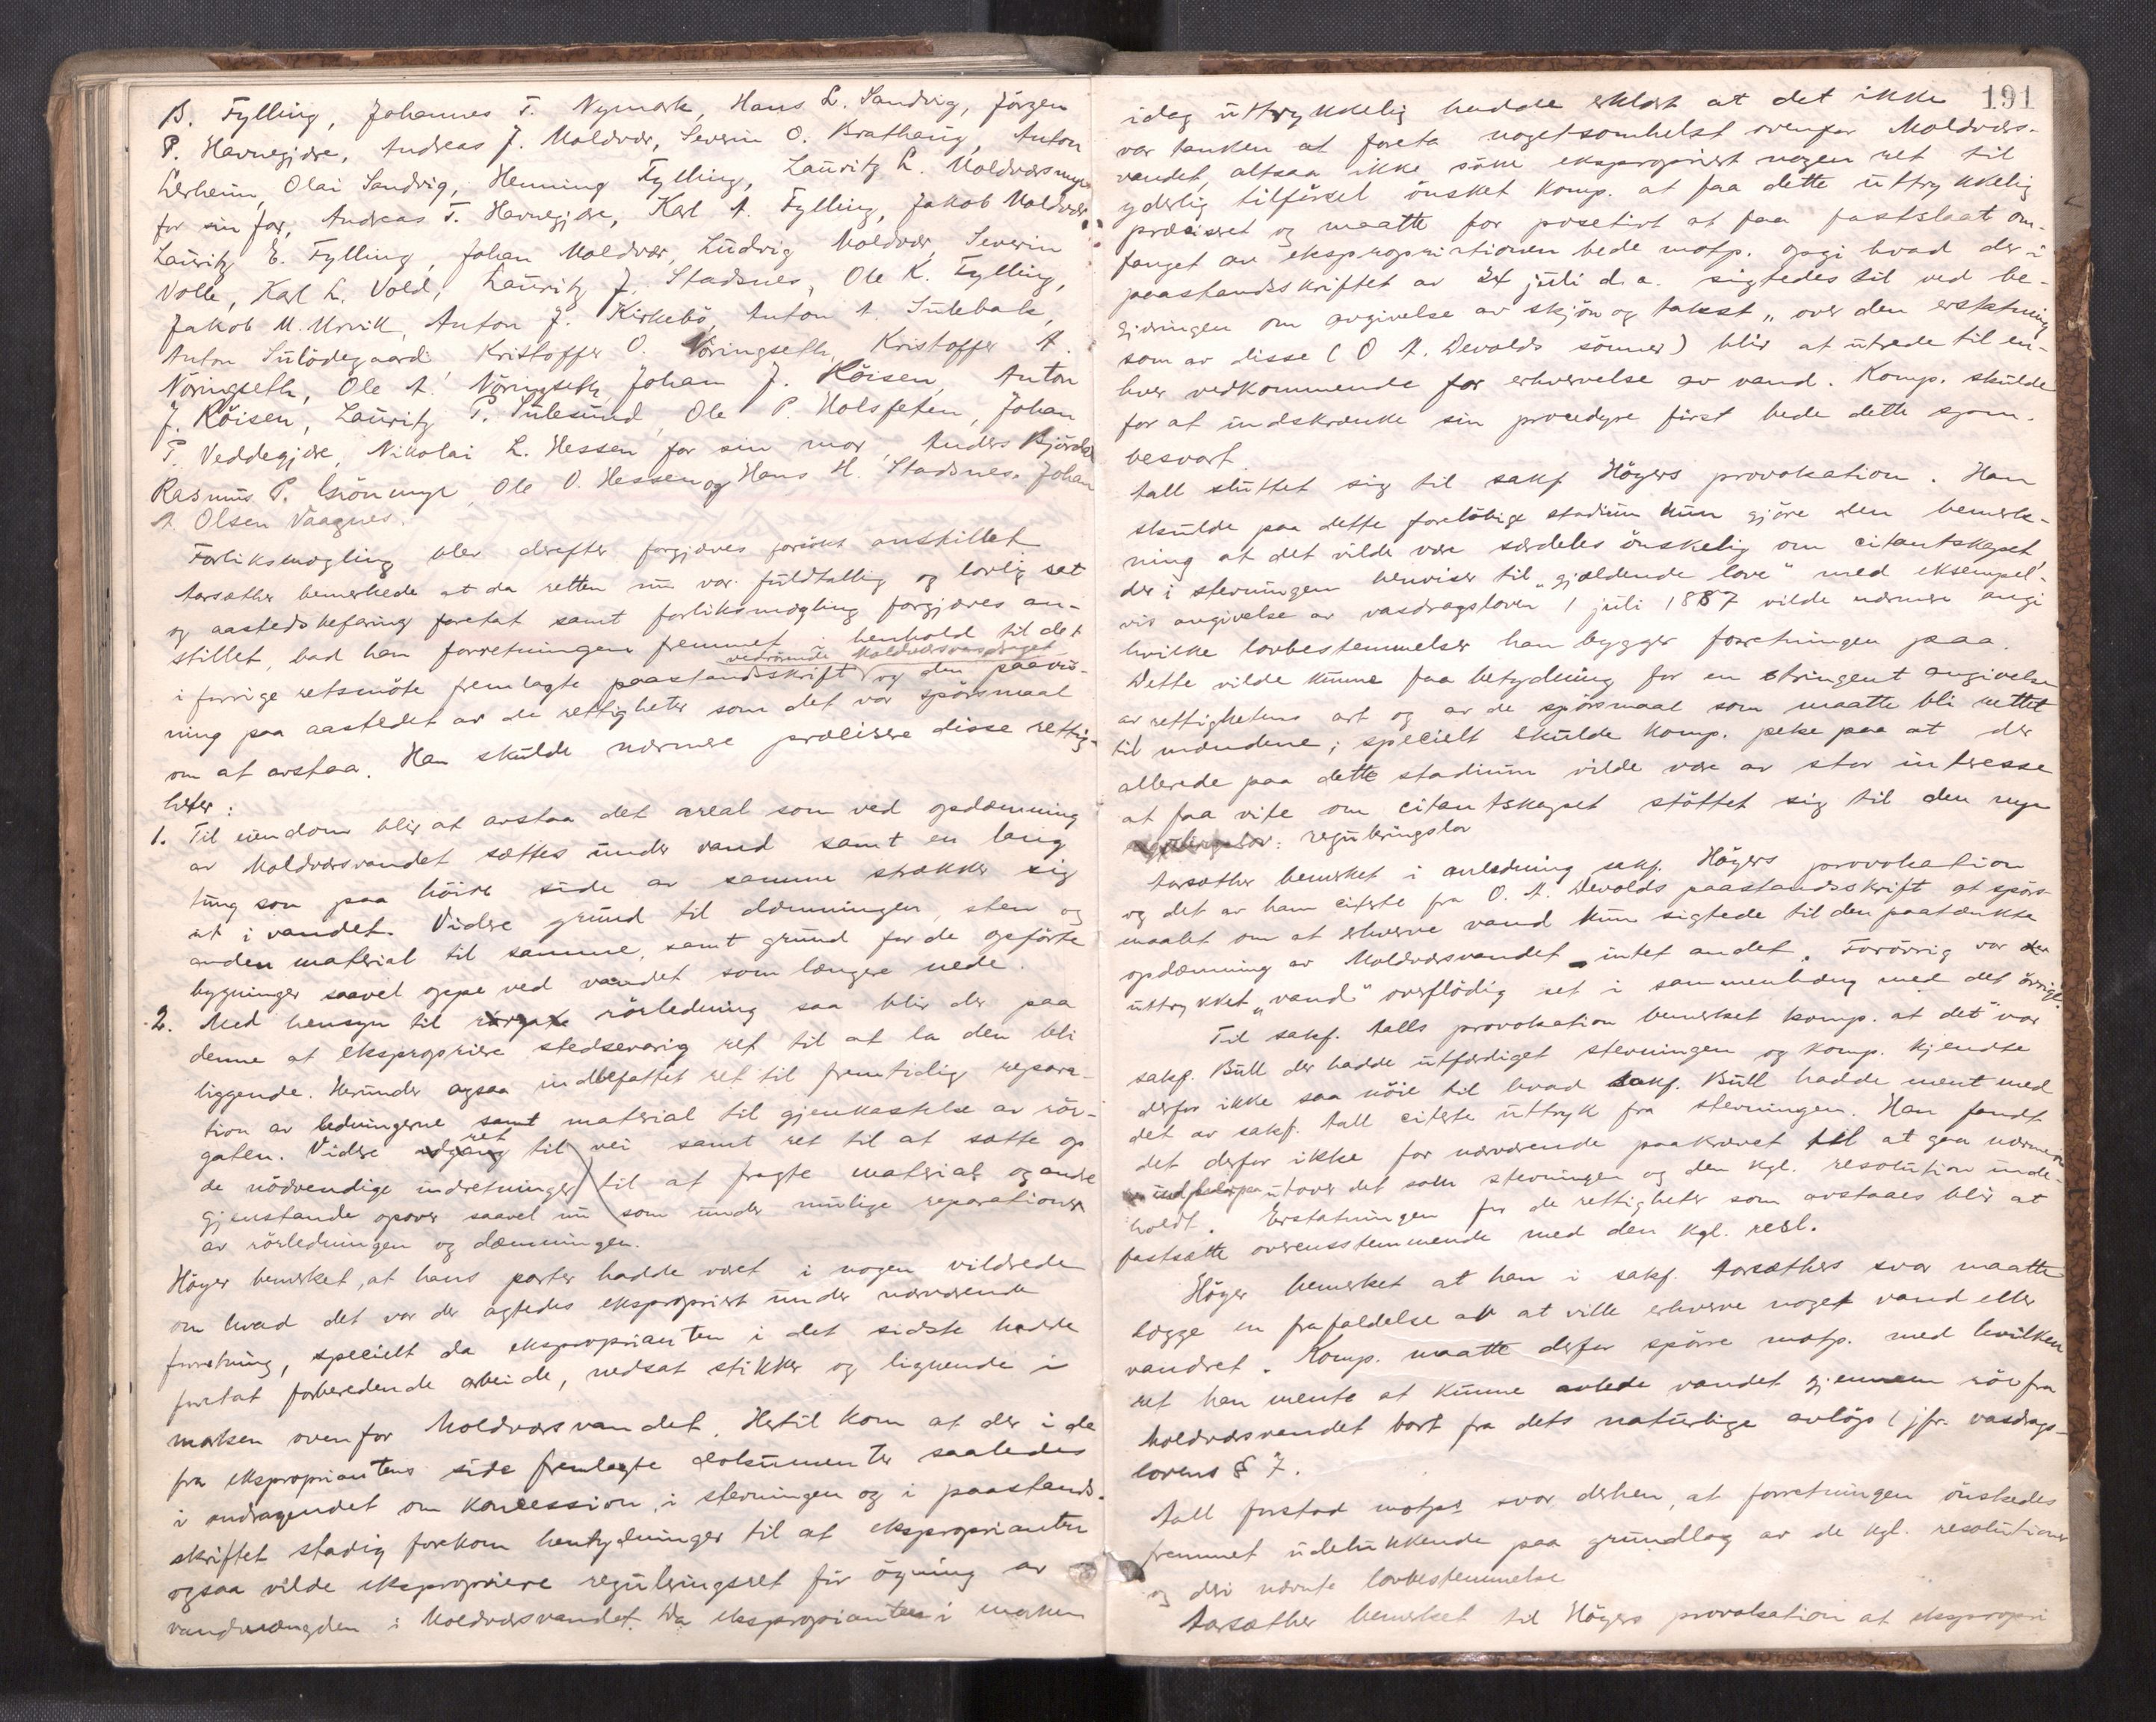 B. Fylling, Johannes T. Nymark, Hans L. Sandvig, Jörgen
P. Havnegjære, Andreas J. Moldvær, Severin O. Brathaug, Anton
Lerheim, Olai Sandvig, Henning Fylling, Lauritz L. Moldværsmyr
for sin far, Andreas T. Havnegjære, Karl A. Fylling, Jakob Moldvær
Lauritz E. Fylling, Johan Moldvær, Ludvig Moldvær, Severin
Volle, Karl L. Vold, Lauritz J. Stadsnes, Ole K. Fylling,
Jakob M. Urvik, Anton J. Kirkebö, Anton A. Sulebak,
Anton Sulödegaard, Kristoffer O. Nöringseth, Kristoffer A.
Nöringseth, Ole A. Nöringseth, Johan J. Röisen, Anton
J. Röisen, Lauritz P. Sulesund, Ole P. Holsfeten, Johan
P. Veddegjære, Nikolai L. Hessen for sin mor, Anders Björdal
Rasmus P. Grönmyr, Ole O. Hessen og Hans H. Stadsnes. Johan
A. Olsen Vaagnes.
Forliksmægling blev derefter forgjæves forsökt anstillet
Aarsæther bemerkede at da retten nu var fuldtallig og lovlig sat
og aastedsbefaring foretat samt forliksmægling forgjæves an-
stillet, bad han forretningen fremmet i henhold til det
vedrörende Moldværsvasdraget
i forrige retsmöte fremlagte paastandsskrift og den paavis-
ning paa aastedet av de rettigheter som det var spörsmaal
om at avstaa. Han skulde nærmere præcisere disse rettig-
heter:
1. Til eiendom blir at avstaa det areal som ved opdæmning
av Moldværsvandet sættes under vand samt en lang
tung som paa höire side av samme strækker sig
ut i vandet. Videre grund til dæmningen, sten og
anden material til samme, samt grund for de opförte
bygninger saavel oppe ved vandet som længere nede.
2. Med hensyn til rörgate rörledning saa blir der paa
denne at ekspropriere stedsevarig ret til at la den bli
liggende. Herunder ogsaa indbefattet ret til fremtidig repara-
tion av ledningerne samt material til gjenkastelse av rör-
ret
gaten. Videre adgang til vei samt ret til at sætte op
de nödvendige indretninger til at fragte material og andre
gjenstande opover saavel nu som under mulige reparationer
av rörledningen og dæmningen.
Höyer bemerket, at hans parter hadde været i nogen vildrede
om hvad det var der agtedes ekspropriert under nærværende
forretning, specielt da eksproprianten i det sidste hadde
foretat forberedende arbeide, nedsat stikker og lignende i
marken ovenfor Moldværsvandet. Hertil kom at der i de
fra eksproprianten side fremlagte dokumenter saaledes
i andragendet om koncession, i stevningen og i paastands-
skriftet stadig forekom hentydninger til at eksproprianten
ogsaa vilde ekspropriere reguleringsret for ögning av
vandmængden i Moldværsvandet. Da eksproprianten i marken
191
idag uttrykkelig hadde erklært at det ikke
var tanken at foreta nogetsomhelst ovenfor Moldværs-
vandet, altsaa ikke söke ekspropriert nogen ret til
yderlig tilförsel önsket komp. at faa dette uttrykkelig
præciseret og maatte for positivt at faa fastslaat om-
fanget av ekspropriationen bede motp. opgi hvad der i
paastandsskriftet av 24 juli d.a. sigtedes til ved be-
gjæringen om avgivelse av skjön og takst „over den erstatning
som av disse (O. A. Devolds sönner) blir at utrede til en-
hver vedkommende for erhvervelse av vand. Komp. skulde
for at indskrænke sin procedyre först bede dette spm.
besvart.
Aall sluttet sig til sakf. Höyers provokation. Han
skulde paa dette foreløbige stadium kun gjöre den bemerk-
ning at det vilde være særdeles önskelig om citantskapet,
der i stevningen henviser til „gjældende love" med eksempel-
vis angivelse av vasdragsloven 1 juli 1887 vilde nærmere angi
hvilke lovbestemmelser han bygger forretningen paa.
Dette vilde kunne faa betydning for en stringent angivelse
av rettighetens art og av de spörsmaal som maatte bli rettet
til mændene; specielt skulde komp. peke paa at der
allerede paa dette stadium vilde være av stor interesse
at faa vite om citantskapet stöttet sig til den nye
reguleringslov
Aarsæther bemerket i anledning sakf. Höyers provokation
og det av ham citerte fra O. A. Devolds paastandsskrift at spörs-
maalet om at erhverve vand kun sigtede til den paatænkte
opdæmning av Moldværsvandet intet andet. Forövrig var
uttrykket „vand" overflödig set i sammenhæng med det övrige.
Til sakf. Aalls provokation bemerket komp. at det var
sakf. Bull der hadde utfærdiget stevningen og komp. kjendte
derfor ikke saa nöie til hvad sakf. Bull hadde ment med
det av sakf. Aall citerte uttryk fra stevningen. Han fandt
det derfor ikke for nærværende paakrævet til at gaa nærmere
utover det som stevningen og den kgl. resolution inde-
holdt. Erstatningen for de rettigheter som avstaaes blir at
fastsætte overensstemmende med den kgl. resl.
Höyer bemerket at han i sakf. Aarsæthers svar maatte
lægge en frafaldelse av at ville erhverve noget vand eller
vandret. Komp. maatte derfor spörre motp. med hvilken
ret han mente at kunne avlede vandet gjennem rör fra
Moldværsvandet bort fra dets naturlige avlöp (jfr. vasdrags-
lovens § 7.
Aall forstod motps svar derhen, at forretningen önskedes
fremmet udelukkende paa grundlag av de kgl. resolutioner
og deri nævnte lovbestemmelse
Aarsæther bemerket til Höyers provokation at ekspropri